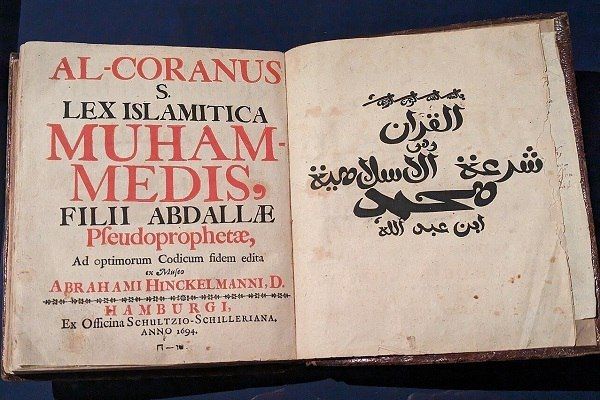 AL-CORANUS
S.
LEX ISLAMITICA
MUHAM-
MEDIS,
FILII ABDALLÆ
Pseudoprophetæ,
Ad optimorum Codicum fidem edita
ex Museo
ABRAHAMI HINCKELMANNI, D.
HAMBURGI,
Ex Officina SCHULTZIO-SCHILLERIANA.
ANNO 1694.
القران
وهي
شرعة الاسلامية
محمد
ابن عبد الله